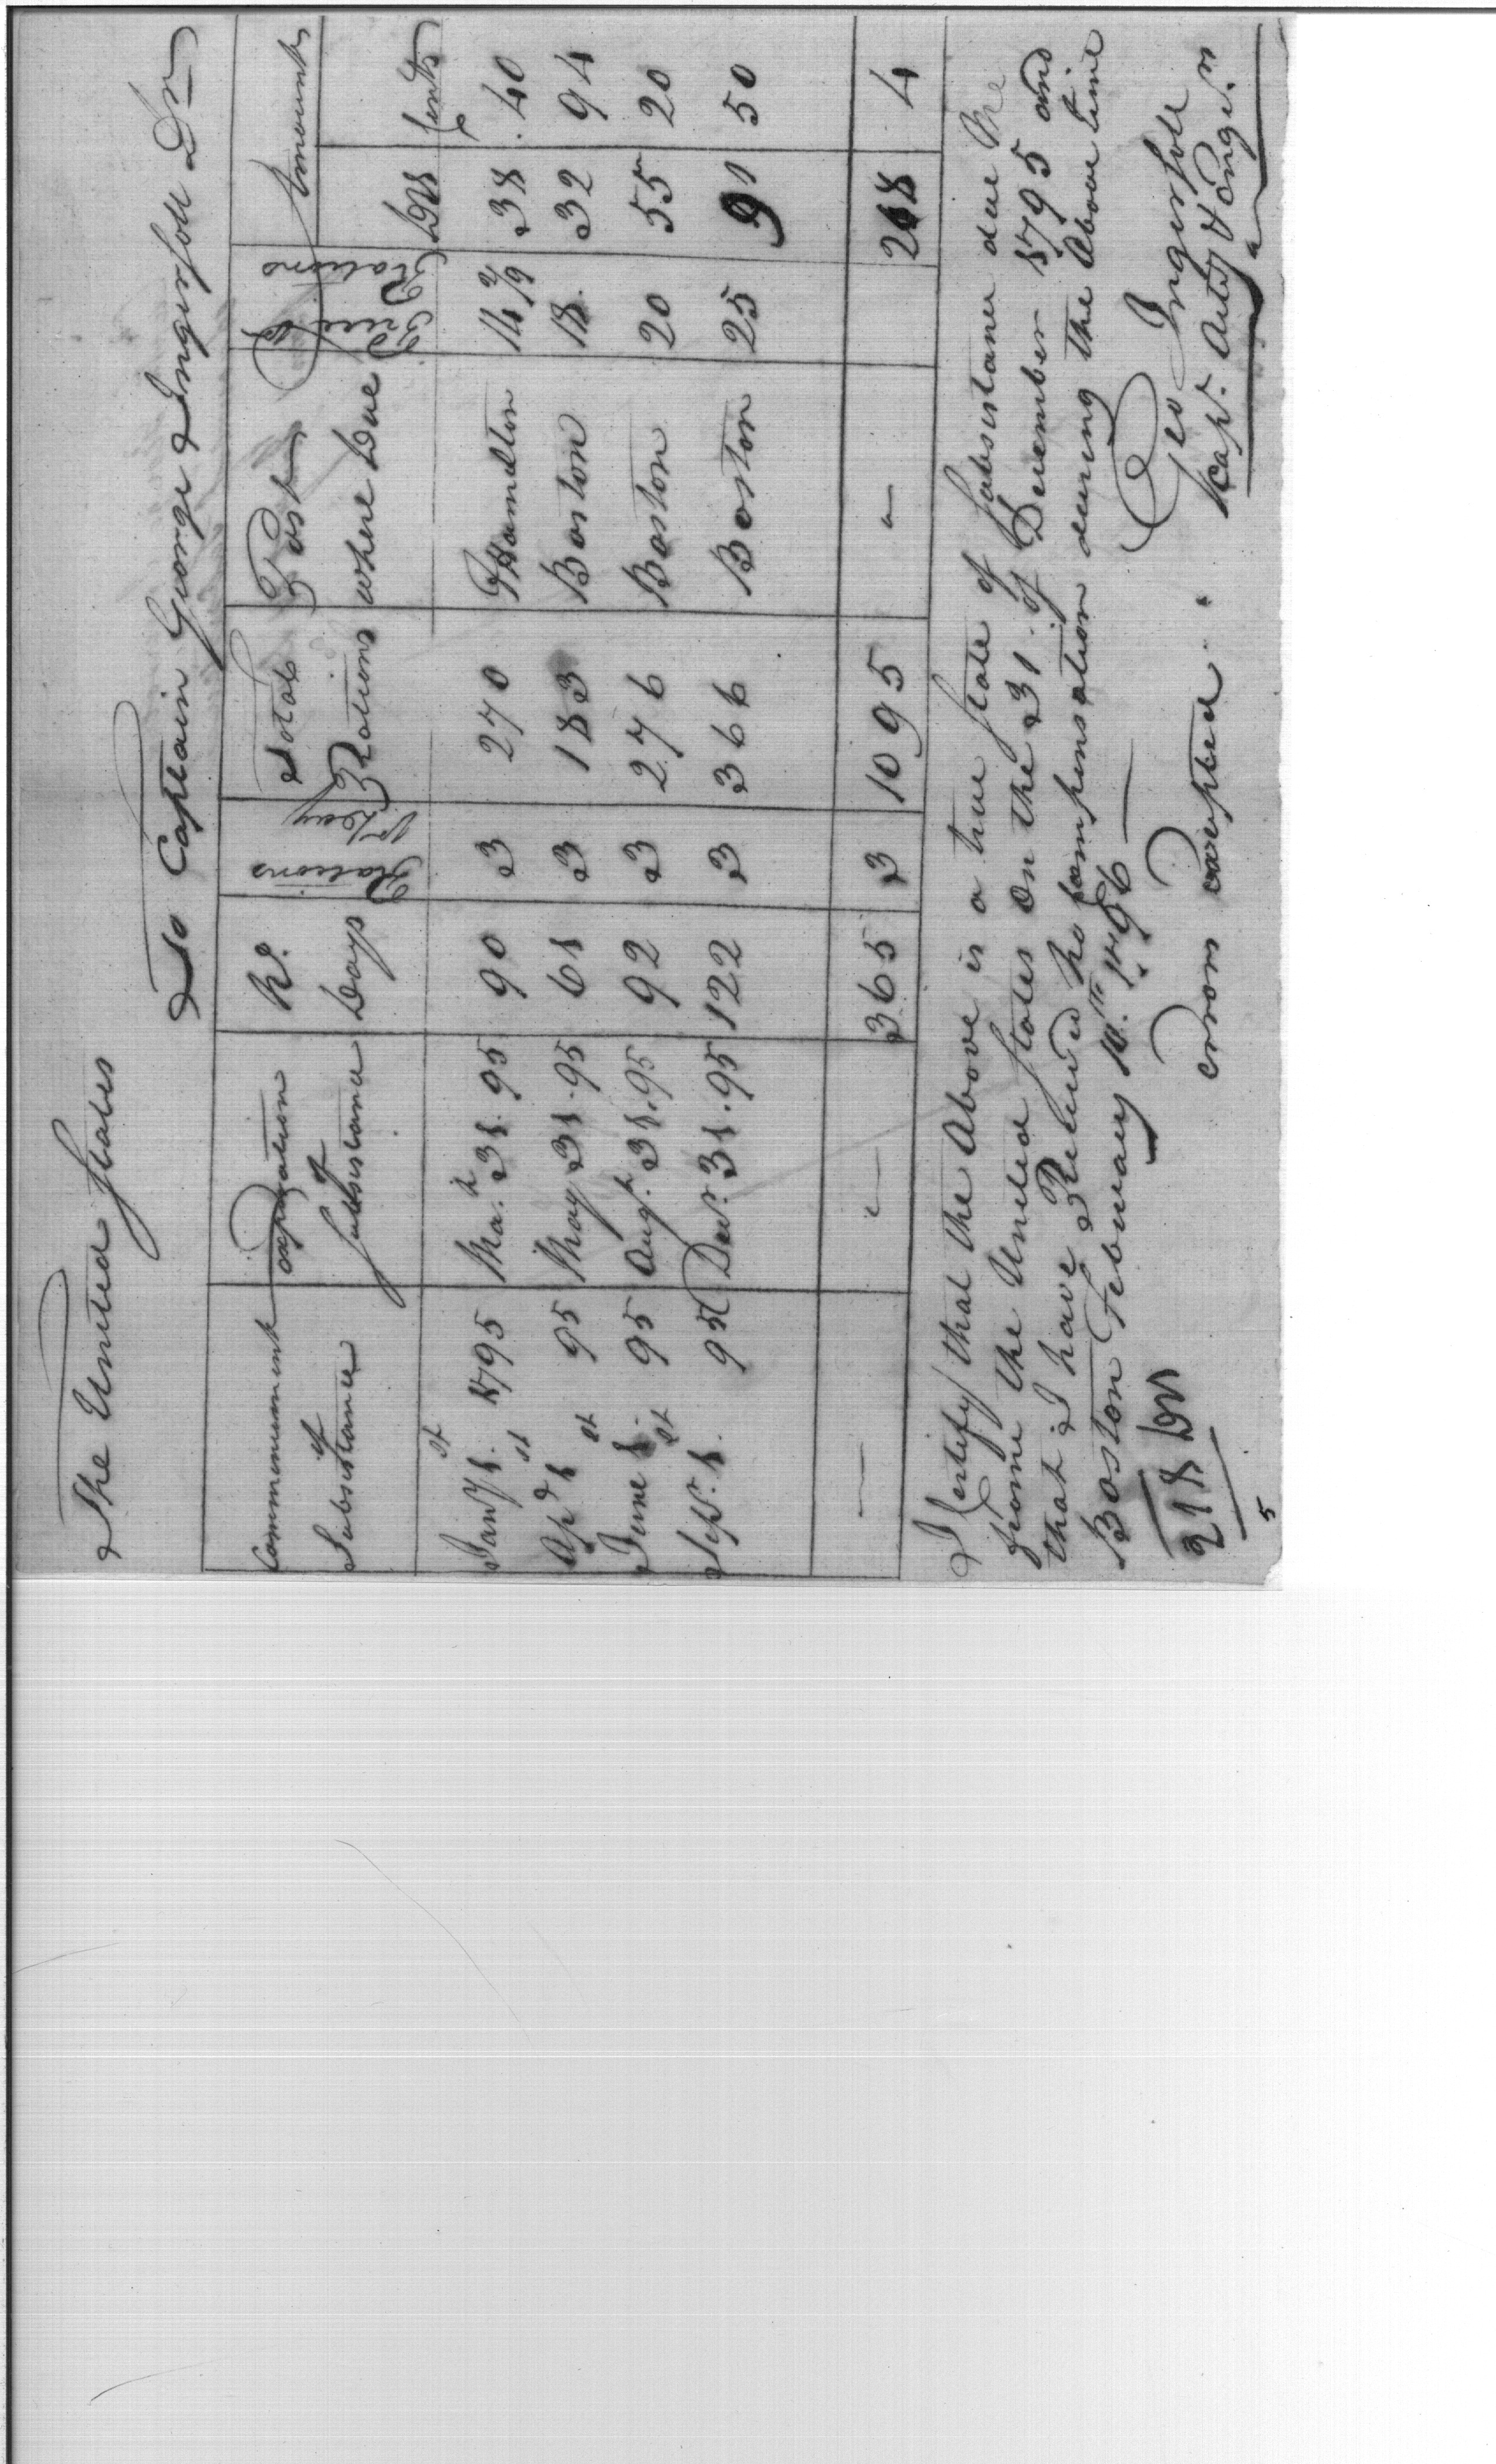 The United States
To Captain George Ingersoll Dr
Commencement of Subsistance | Expiration of Subsistance | No. Days | Rations pr Day | Total Rations | Post where Due | Price of Rations | Amounts Dlls Cents
Jany 1st 1795 | Mar. 31. 95 | 90 | 3 | 270 | Ft Hamelton | 14 2/9 | 38 . 40
Apl 1st 95 | May 31. 95 | 61 | 3 | 183 | Boston | 18. | 32 94
June 1st 95 | Augt 31. 95 | 92 | 3 | 276 | Boston | 20 | 55 20
Sepr. 1st 95 | Decr. 31. 95 | 122 | 3 | 366 | Boston | 25 | 91 50
— | — | 365 | 3 | 1095 | — | | 218 4
I Certify that the Above is a true State of Subsistance due Me
from the United States on the 31. of December 1795 and
that I have Received no Compensation during the Above time
Boston February 10th. 1796 —
Geo Ingersoll
Capt. Arty & Engrs
Errors Excepted.
218 Dlls
5